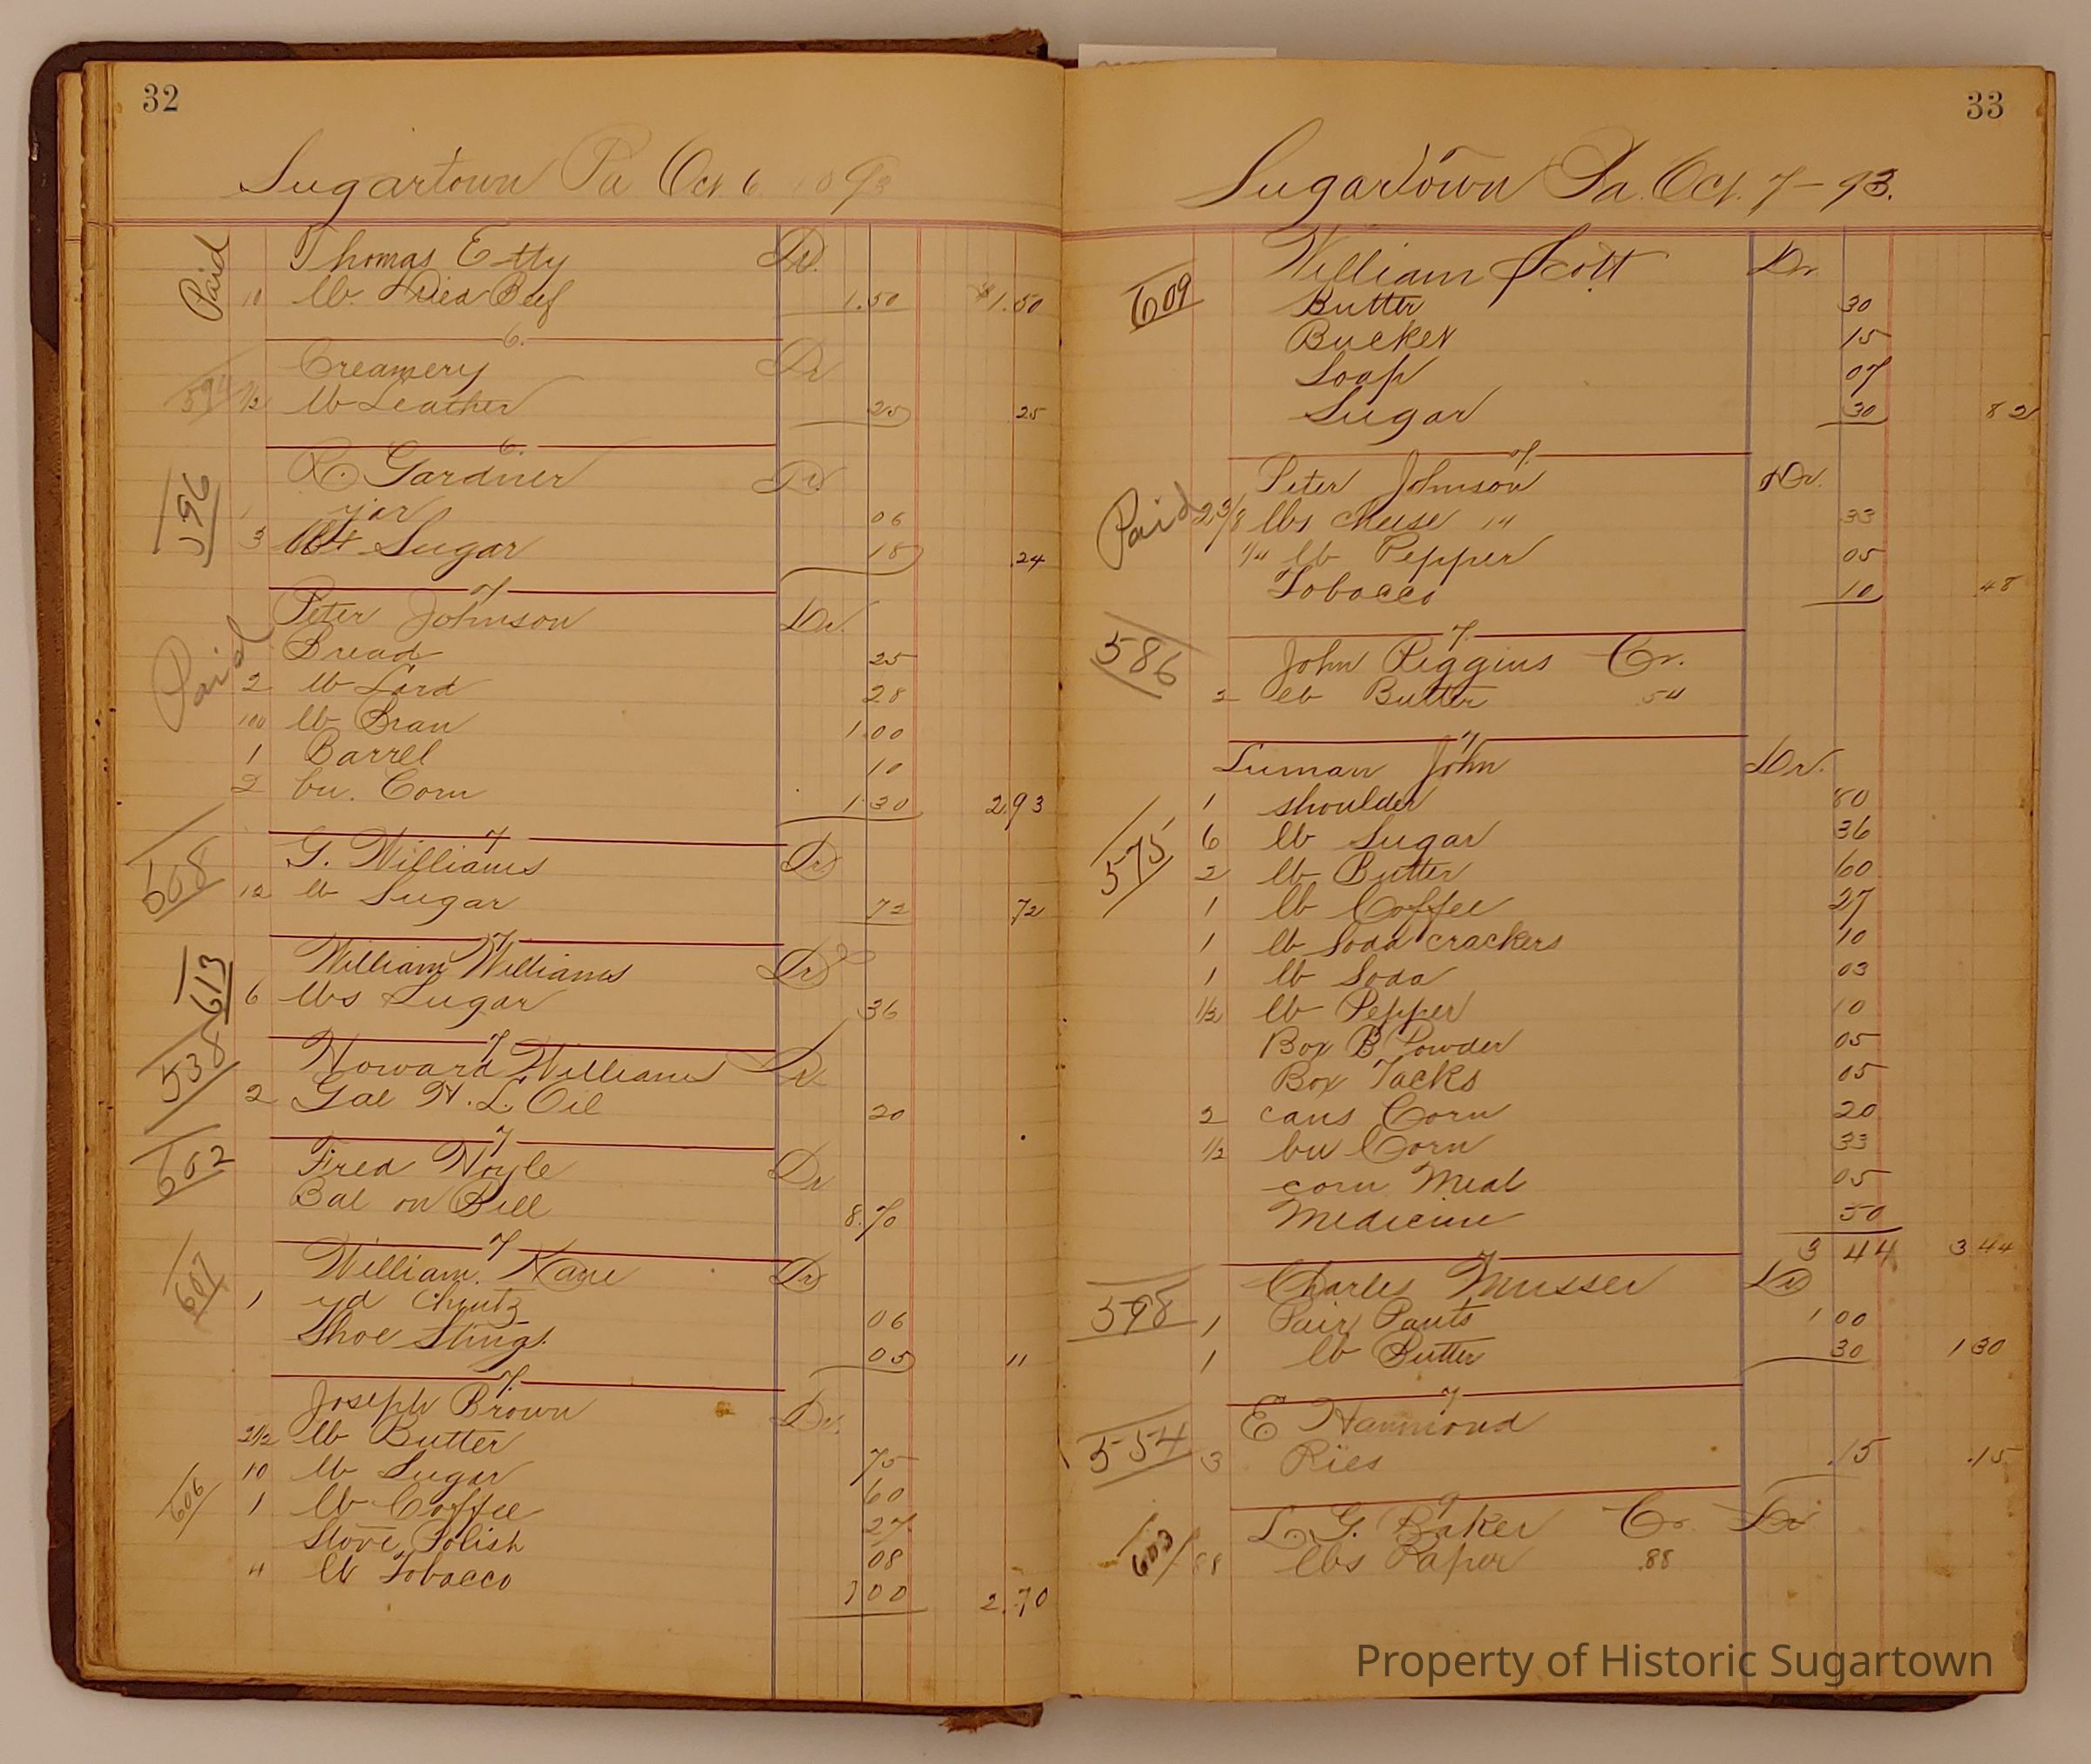 32
Sugartown Pa Oct. 6 93
Paid
Thomas Etty Dr.
10 lb. Dried Beef 1.50 $1.50
6.
Creamery Dr
594 1/2 lb Leather 25 25
6.
R. Gardner Dr.
596
1 jar 06
3 lbs Sugar 18 24
7
Peter Johnson Dr.
Paid
Bread 25
2 lb Lard 28
100 lb Bran 1.00
1 Barrel 10
2 bu. Corn 1.30 2.93
7
G. Williams Dr
608
12 lb Sugar 72 72
7
William Williams Dr
613
6 lbs Sugar 36
7
Howard Williams Dr
538
2 Gal H. L. Oil 20
7
Fred Hoyle Dr
602
Bal on Bill 8.70
7
William. Kane Dr
607
1 yd Chintz 06
Shoe Stings. 05 11
7.
Joseph Brown Dr.
2 1/2 lb Butter 75
10 lb Sugar 60
606
1 lb Coffee 27
Stove Polish 08
4 lb Tobacco 1 00 2.70
33
Sugartown Pa. Oct. 7-93.
William Scott Dr
609
Butter 30
Bucket 15
Soap 07
Sugar 30 82
7.
Peter Johnson Dr.
Paid
2 3/8 lbs cheese 14 33
1/4 lb Pepper 05
Tobacco 10 48
7.
586
John Piggins Cr.
2 lb Butter 54
7
Luman John Dr.
1 shoulder 80
6 lb Sugar 36
575
2 lb Butter 60
1 lb Coffee 27
1 lb Soda crackers 10
1 lb Soda 03
1/2 lb Pepper 10
Box B Powder 05
Box Tacks 05
2 cans Corn 20
1/2 bu Corn 33
corn Meal 05
Medicine 50
3 44 3 44
7
Charles Musser Dr
598
1 Pair Pants 1 00
1 lb Butter 30 1 30
7
E Hammond
554
3 Ries .15 .15
9
L. G. Baker Cr Dr
603
88 lbs Paper .88
Property of Historic Sugartown